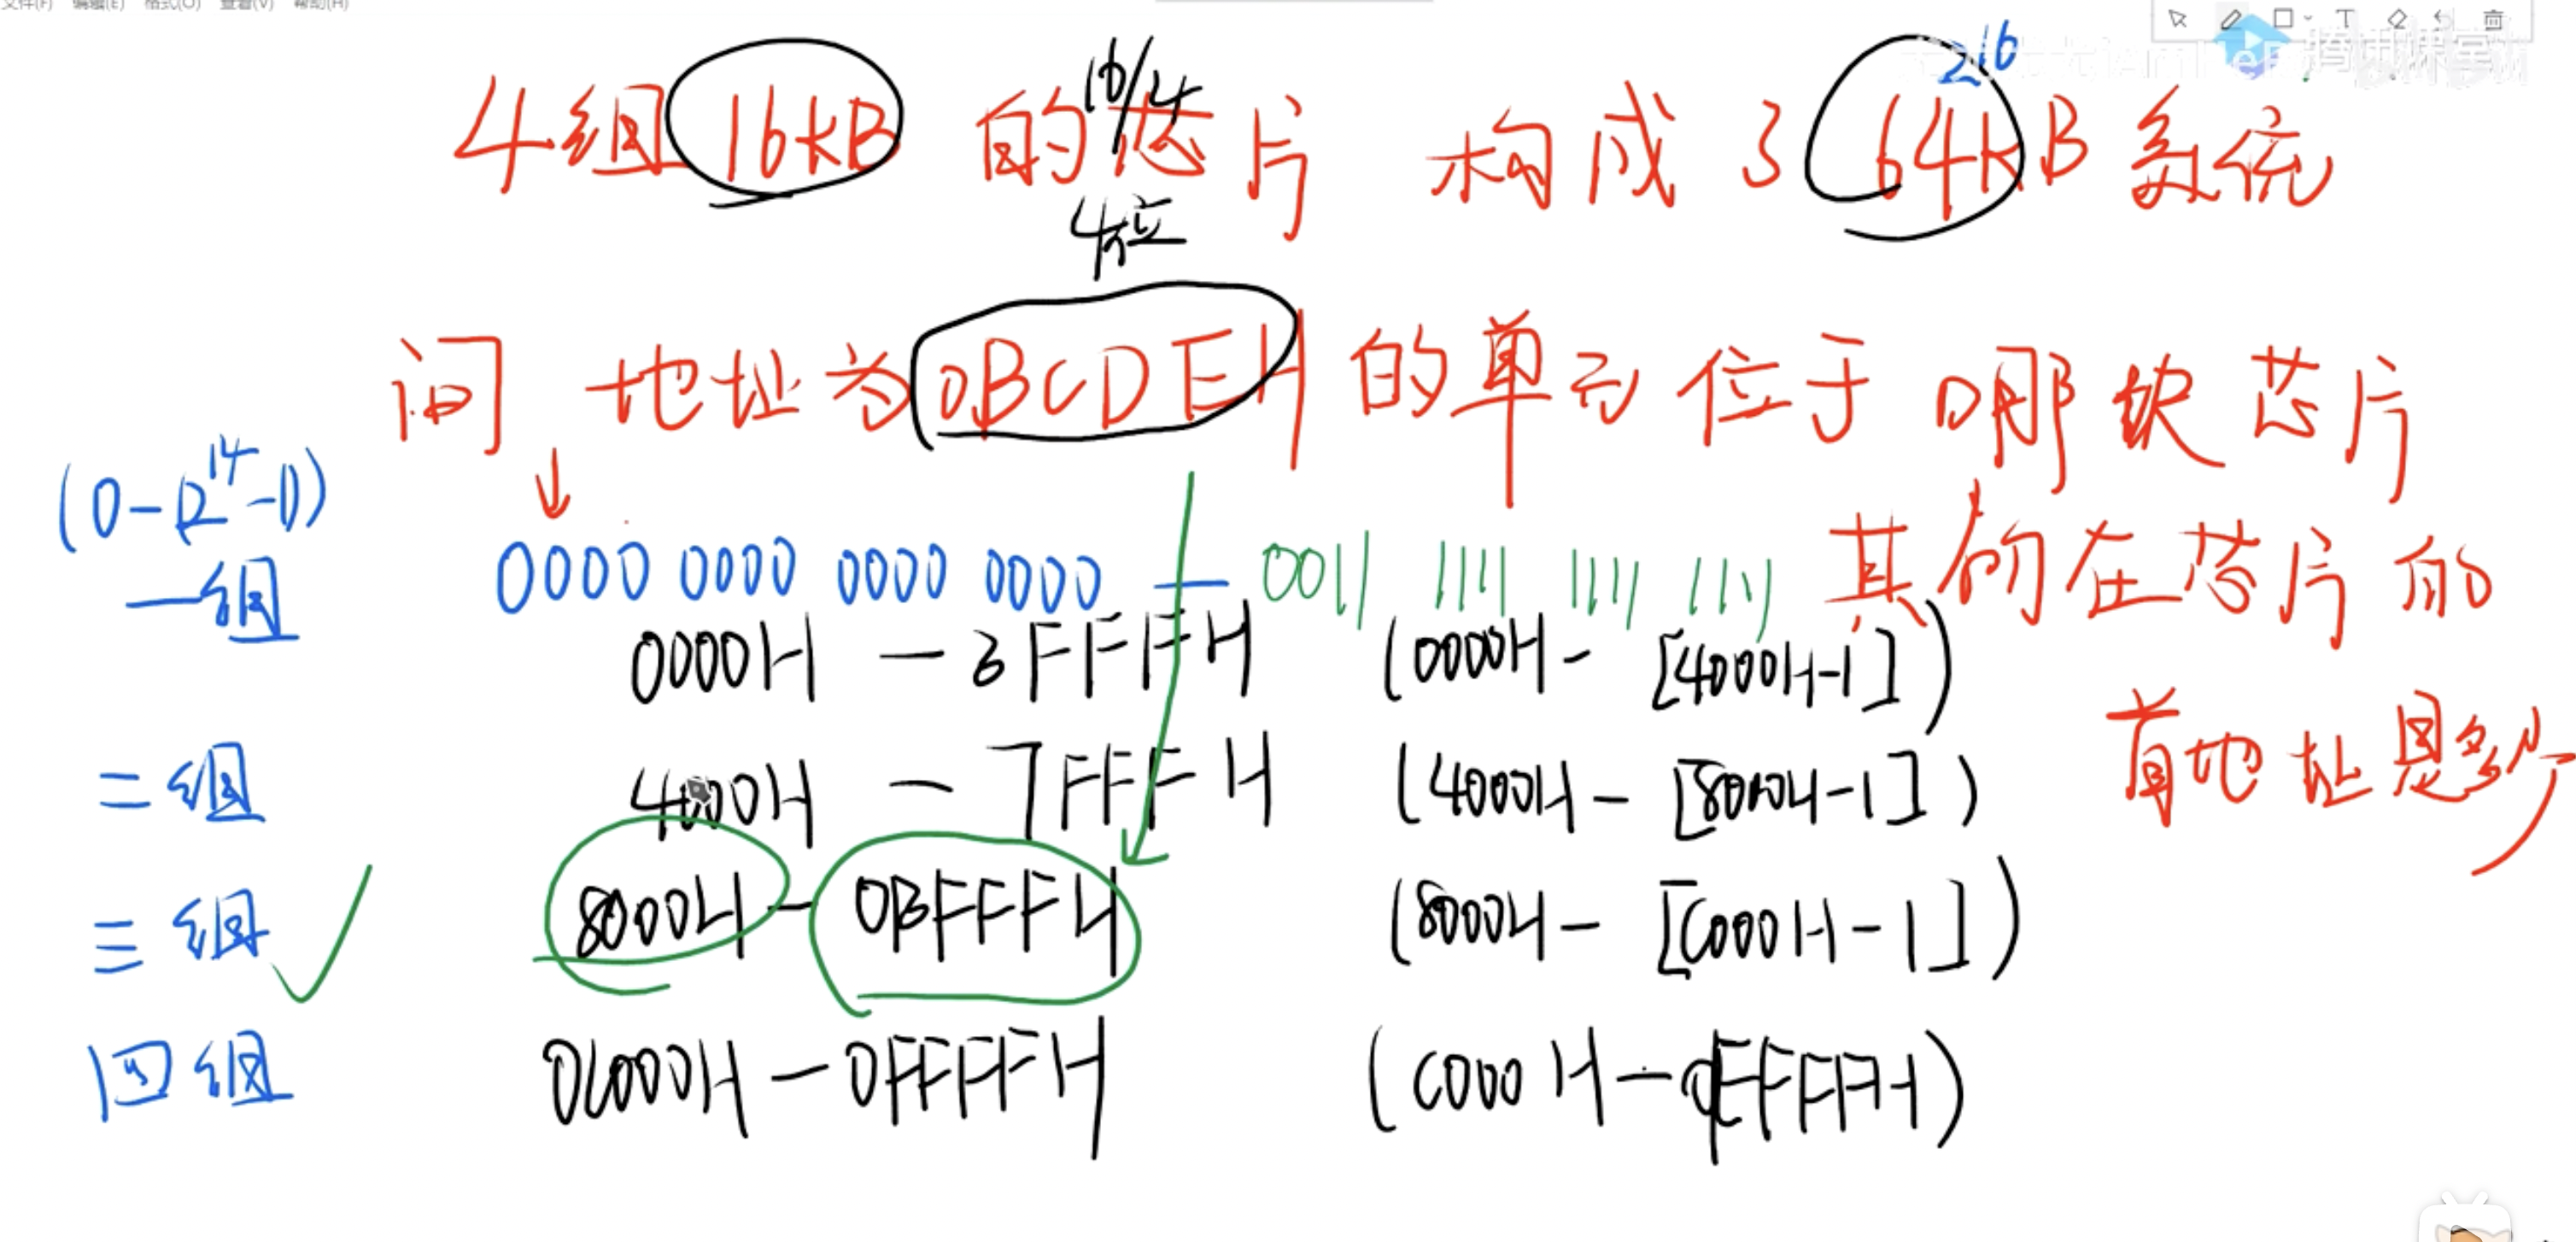 文件(F) 编辑(E) 格式(O) 查看(V) 帮助(H)
2^16
16/4
4组 16KB 的芯片 构成了 64KB 系统
4位
问 地址为 0BCDEH 的单元位于哪块芯片
(0-(2^14-1))
一组 0000 0000 0000 0000 — 0011 1111 1111 1111 其所在芯片的
0000H — 3FFFH (0000H- [4000H-1])
首地址是多少
二组 4000H — 7FFFH (4000H- [8000H-1])
三组 8000H - 0BFFFH (8000H- [C000H-1])
四组 0C000H - 0FFFFH (C000H-0FFFFH)